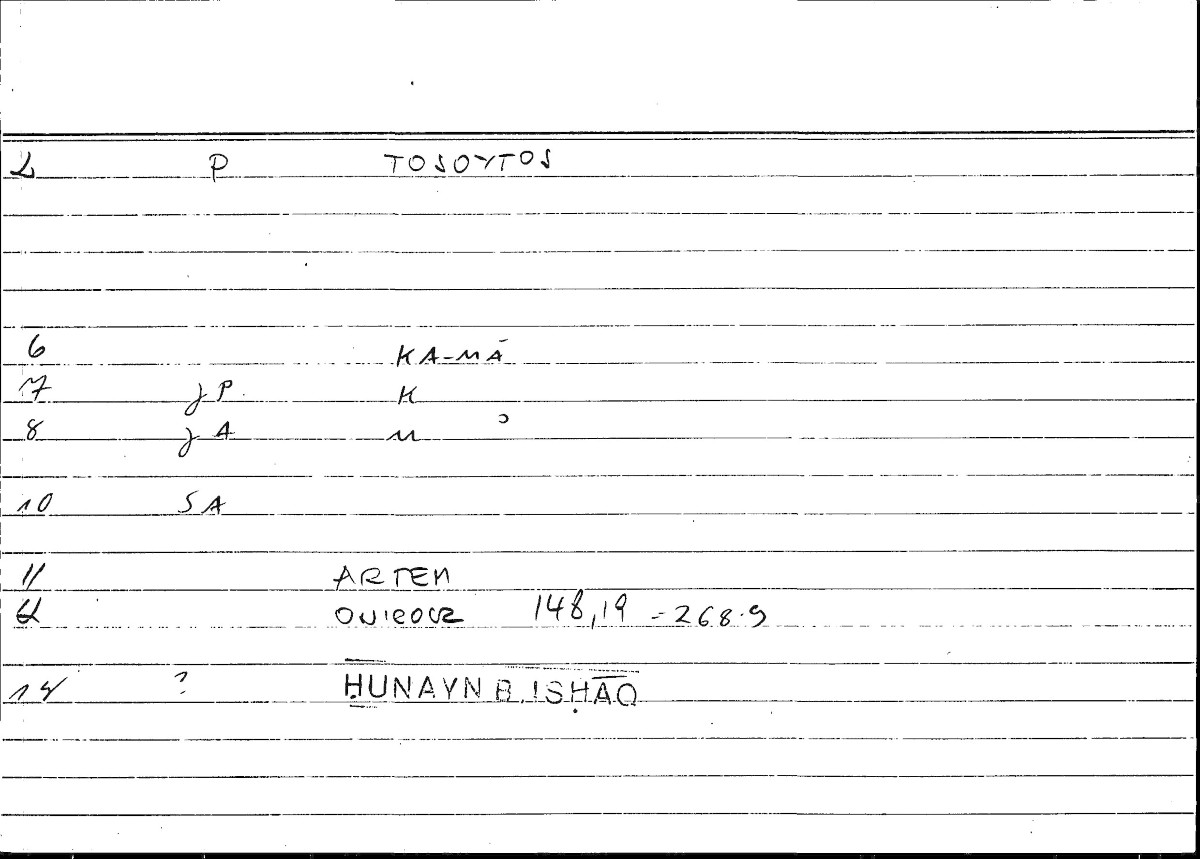 2 P TOSOYTOS
6 KA-MĀ
7 JP. K
8 JA M
10 SA
11 ARTEM
12 ONIROCR 148,19 - 268.9
14 ? ḤUNAYN B. ISḤĀQ